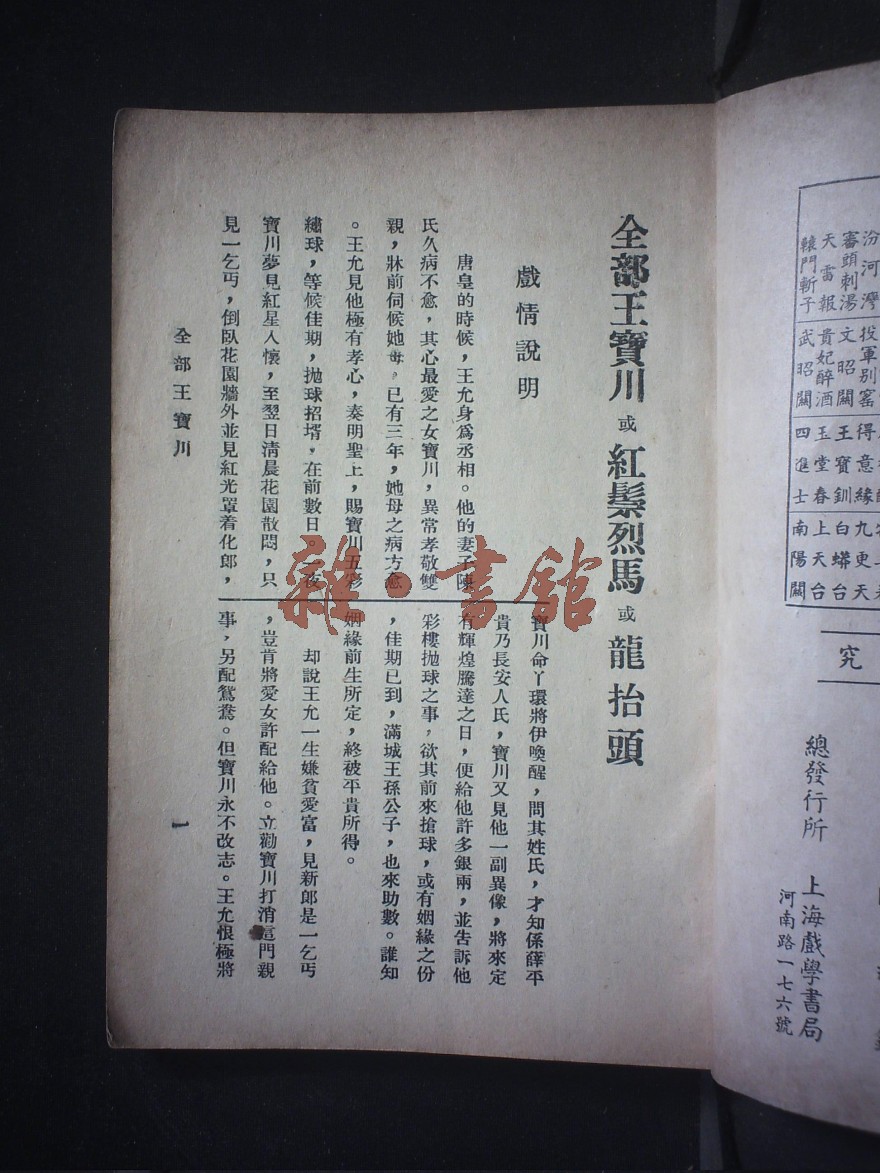 全部王寶川或紅鬃烈馬或龍抬頭
戲情說明
唐皇的時候，王允身爲丞相。他的妻子陳
氏久病不愈，其心最愛之女寶川，異常孝敬雙
親，牀前伺候她母。已有三年，她母之病方愈
。王允見他極有孝心，奏明聖上，賜寶川五彩
繡球，等候佳期，抛球招壻，在前數日。一夜
寶川夢見紅星人懷，至翌日清晨花園散悶，只
見一乞丐，倒臥花園牆外並見紅光罩着化郎，
寶川命丫環將伊喚醒，問其姓氏，才知係薛平
貴乃長安人氏，寶川又見他一副異像，將來定
有輝煌騰達之日，便給他許多銀兩，並告訴他
彩樓抛球之事，欲其前來搶球，或有姻緣之份
，佳期已到，滿城王孫公子，也來助數。誰知
姻緣前生所定，終被平貴所得。
却說王允一生嫌貧愛富，見新郎是一乞丐
，豈肯將愛女許配給他。立勸寶川打消這門親
事，另配鴛鴦。但寶川永不改志。王允恨極將
全部王寶川
一
雜·書館
汾河灣
審頭刺湯
天雷報
轅門斬子
投軍別窰
文昭關
貴妃醉酒
武昭關
得意緣
王寶釧
玉堂春
四進士
九更天
白蟒台
上天台
南陽關
究
總發行所
上海戲學書局
河南路一七六號